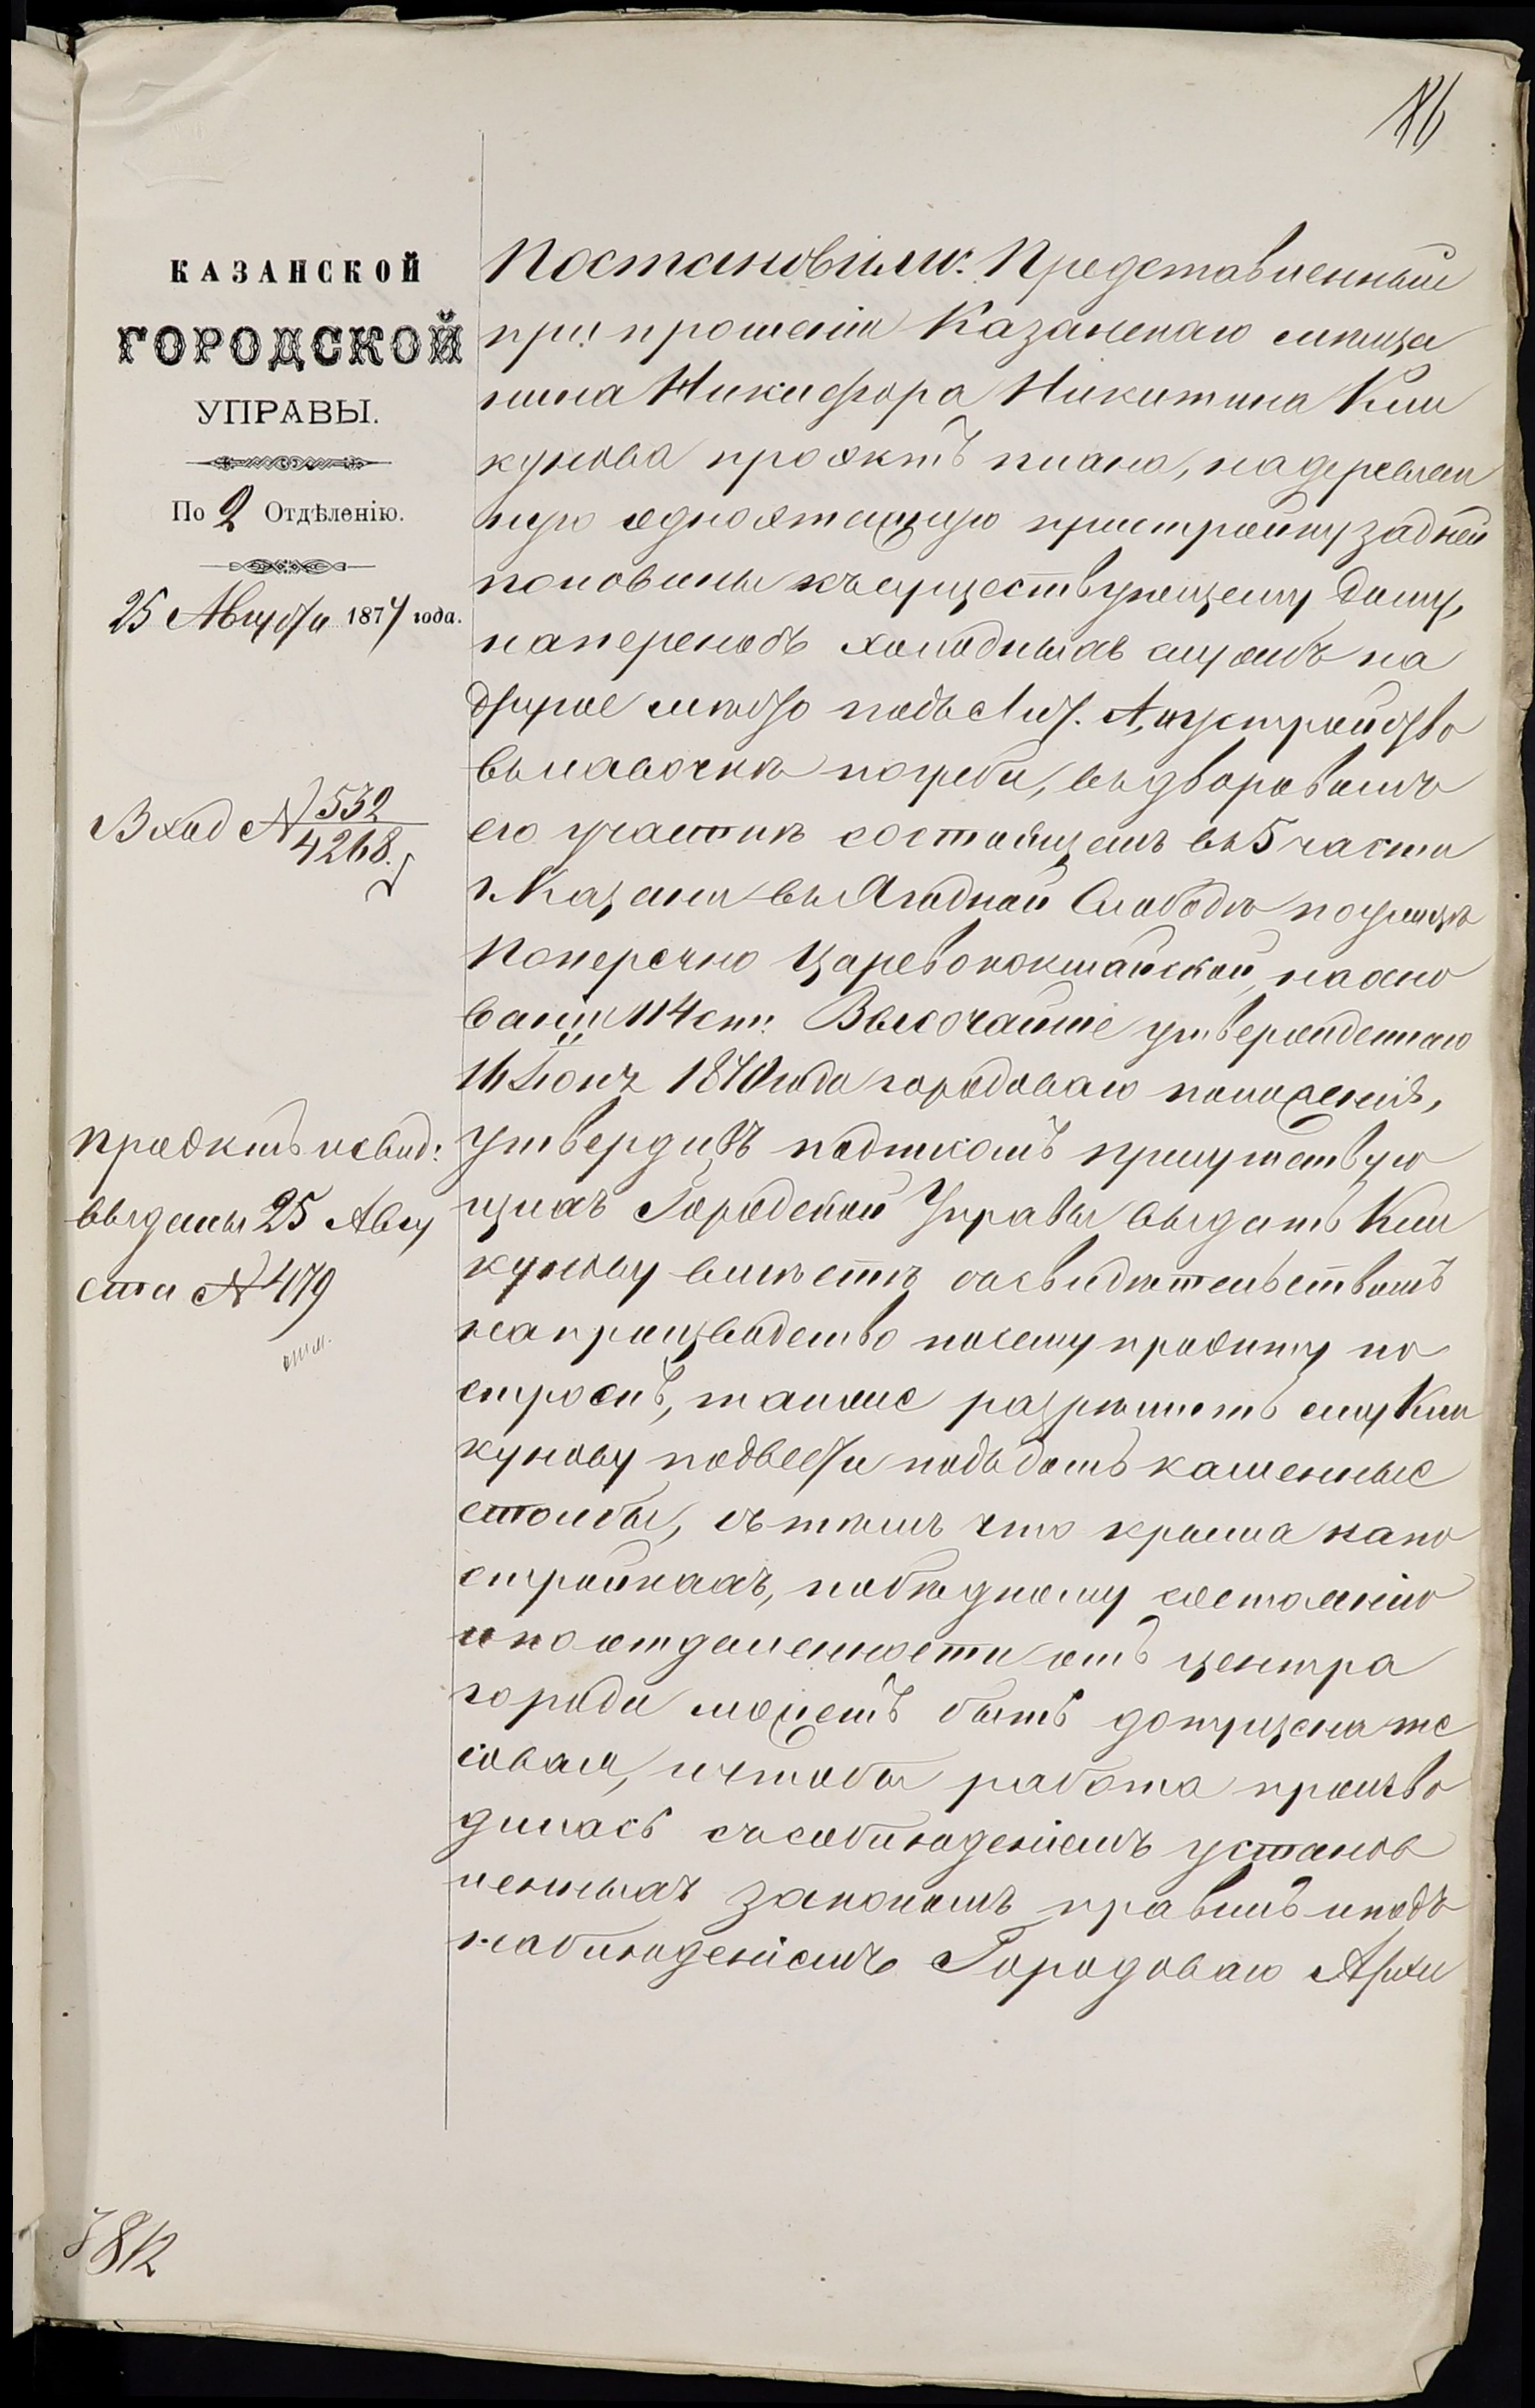 86
КАЗАНСКОЙ
ГОРОДСКОЙ
УПРАВЫ.
По 2 Отдѣленію.
25 Августа 1874 года.
Вход № 532
4268.
Проэктъ и свид:
выданы 25 Авгу
ста № 479
Постановили: Представленный
при прошеніи Казанскаго мѣща
нина Никифора Никитина Кли
кунова проэктъ плана, на деревян
ную одноэтажную пристройку задней
половины къ существующему дому,
на переносъ холодныхъ службъ на
другое мѣсто подъ Лит. А, и устройство
въ лавочкѣ погреба, въ дворовомъ
его участкѣ состоящемъ въ 5 части
г. Казани въ Ягодной Слободѣ по улицѣ
Поперечно Царевококшайской, на осно
ваніи 114 ст. Высочайше утвержденнаго
16 Іюня 1870 года городоваго положенія,
утвердивъ подписомъ присутствую
щихъ Городской Управы выдать Кли
кунову вмѣстѣ съ свидѣтельствомъ
на производство по сему проэкту по
строекъ, также разрѣшить ему Кли
кунову подвести подъ домъ каменные
столбы, съ тѣмъ что крыша на по
стройкахъ, по бѣдному состоянію
и по отдаленности отъ центра
города можетъ быть допущена те
совая, и чтобы работа произво
дилась съ соблюденіемъ установ
ленныхъ закономъ правилъ и подъ
наблюденіемъ Городоваго Архи